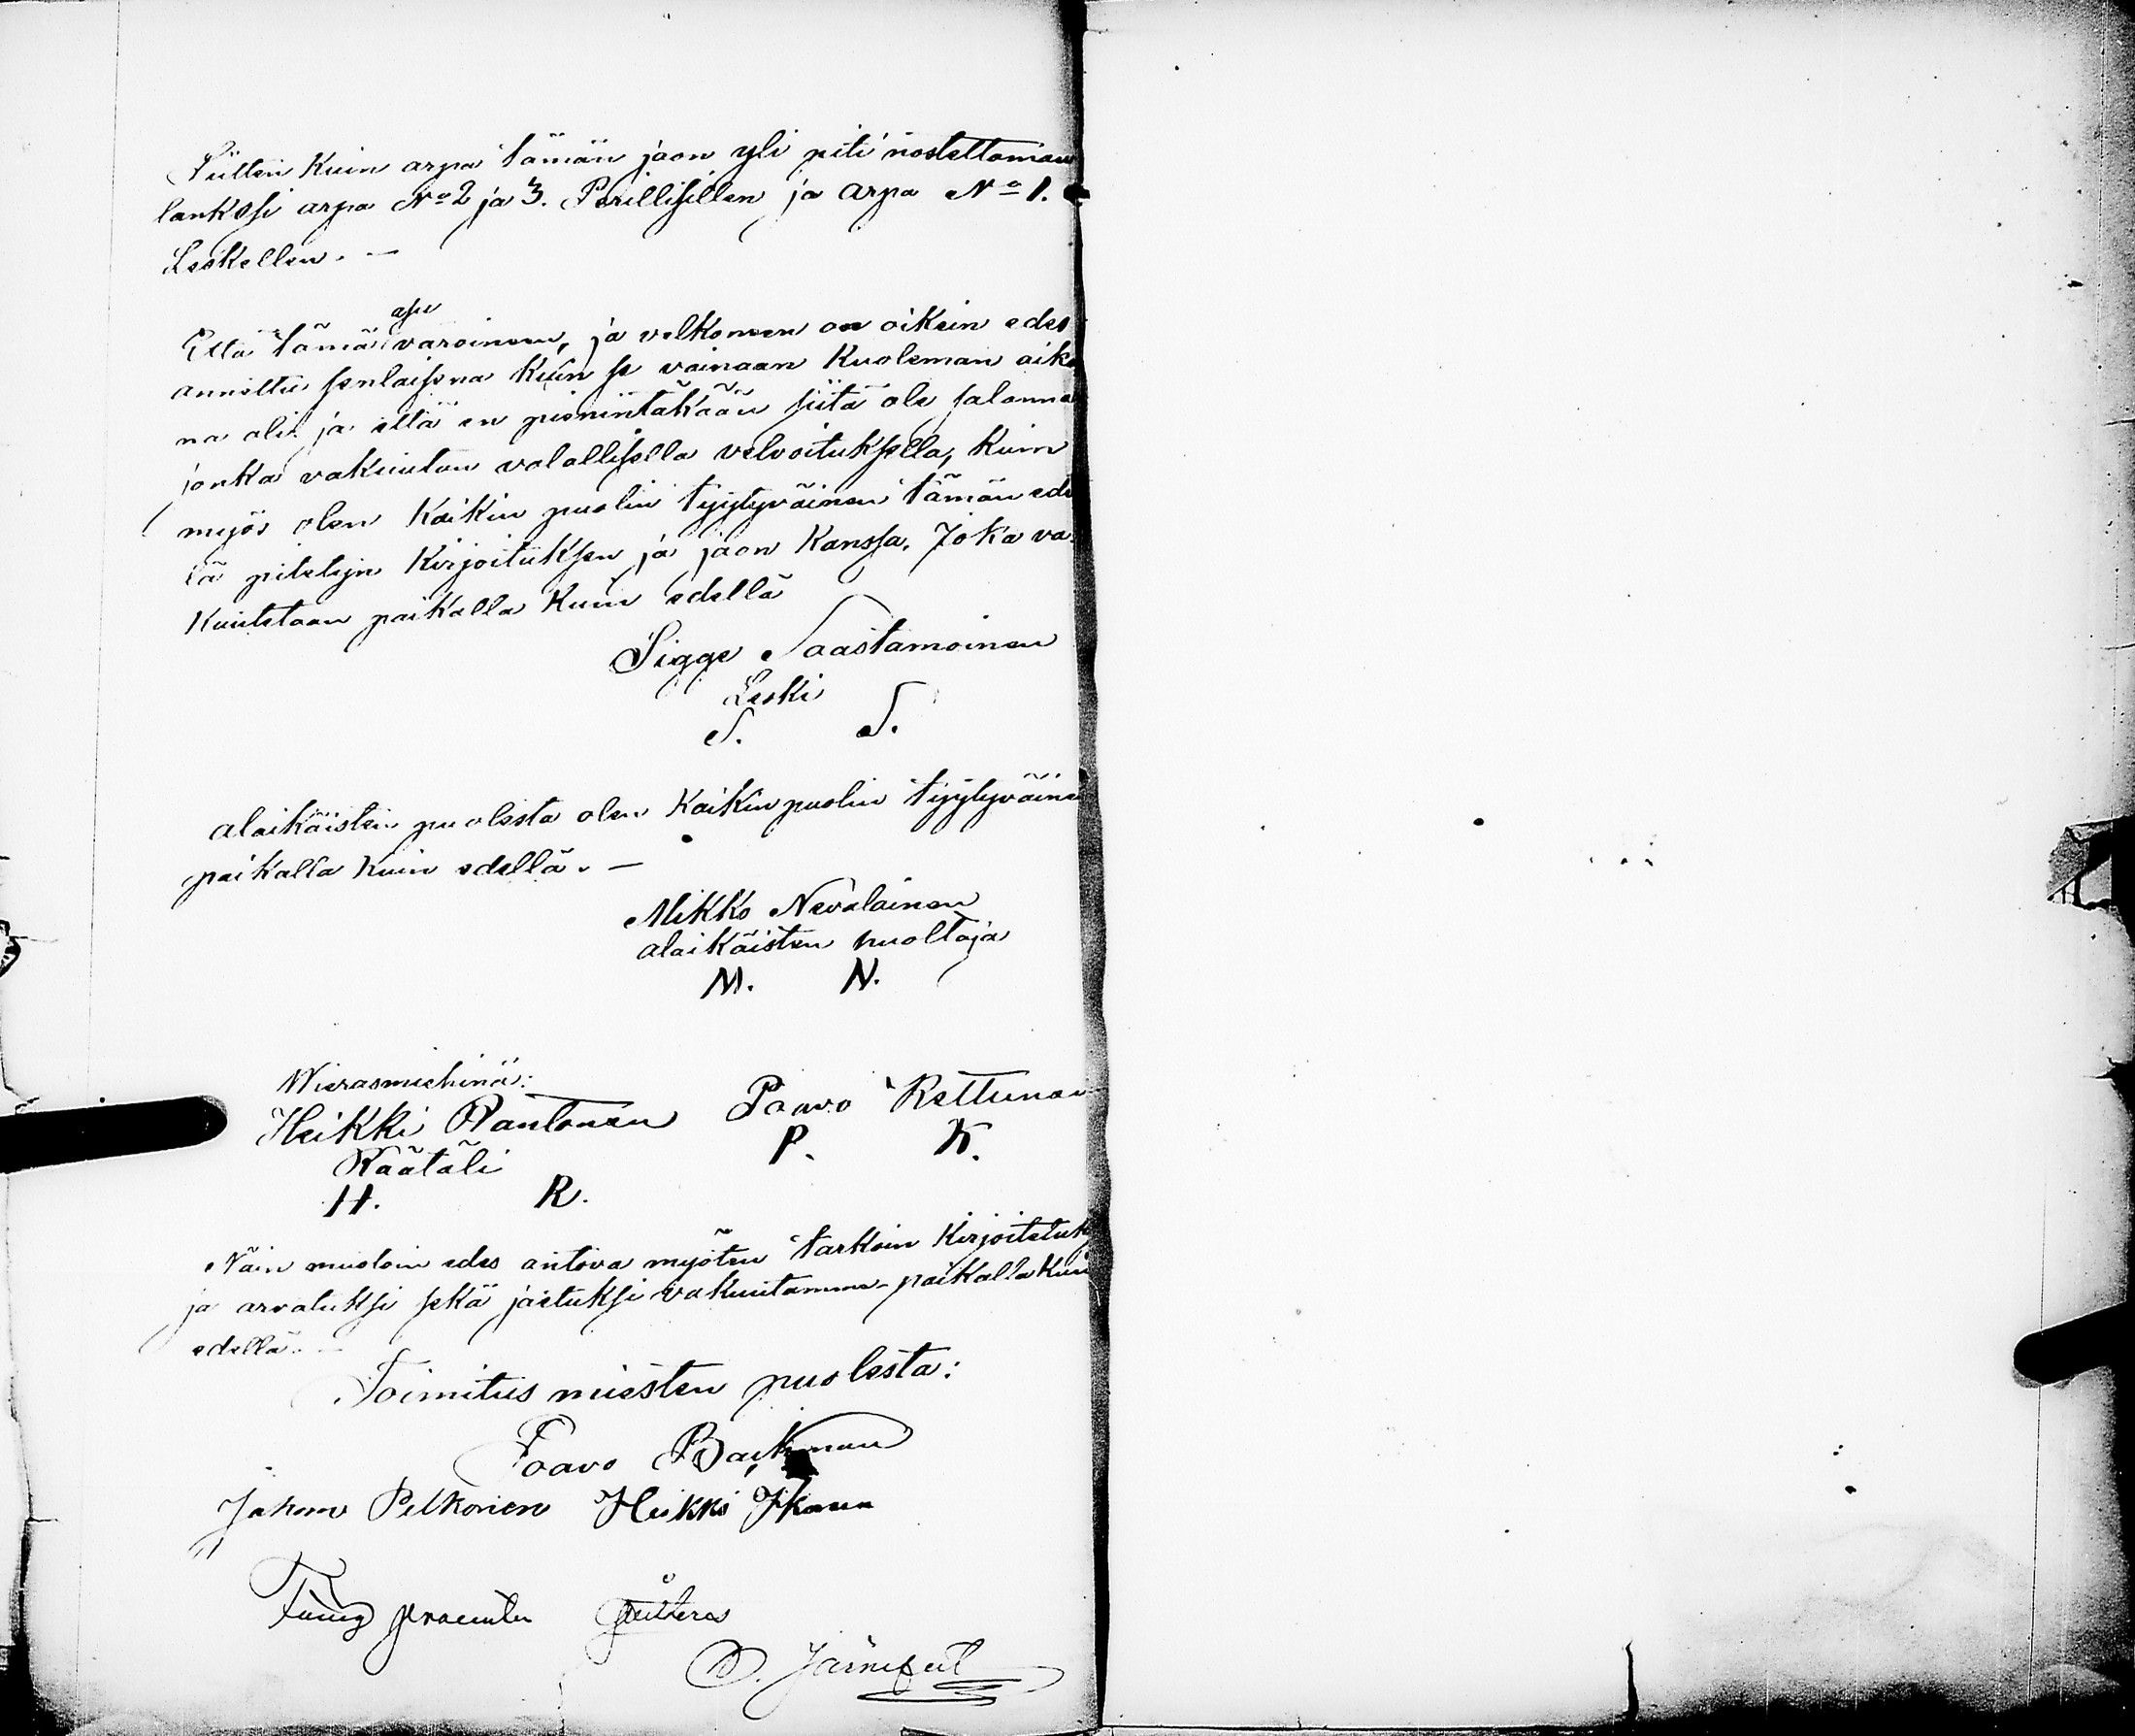 Siitten kuin arpa tämän jaon yli piti nostettaman
lankesi arpa No 2 ja 3. Perillisillen ja arpa No 1.
Leskellen. —
Että tämä asu varoineen, ja velkoneen on oikein edes
annettu senlaisena kuin se vainaan Kuoleman aika
na oli ja että en pienintäkään siitä ole salanna
jonka vakuutan valallisella velvoituksella, kuin
myös olen kaikin puolin tyytyväinen tämän edel
lä pidetyn Kirjoituksen ja jaon kanssa. Joka va-
kuutetaan paikalla kuin edellä
Sigge Saastamoinen
Leski
S. S.
alaikäisten puolesta olen kaikinpuolin tyytyväine
paikalla kuin edellä. —
Mikko Nevalainen
alaikäisten huoltaja
M. N.
Wierasmiehinä:
Heikki Rantonen Paavo Kettunen
Räätäli P. K.
H. R.
Näin muotoin edes antova myöten tarkoin kirjoitetuk
ja arvatuksi sekä jaetuksi vakuutamme paikalla kuin
edellä. —
Toimitus miesten puolesta:
Paavo Backman
Johan Pelkonen Heikki Ikonen
Järnefelt